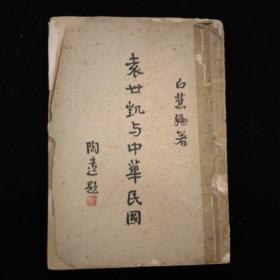 白蕉編著
袁世凱与中華民國
陶遺題